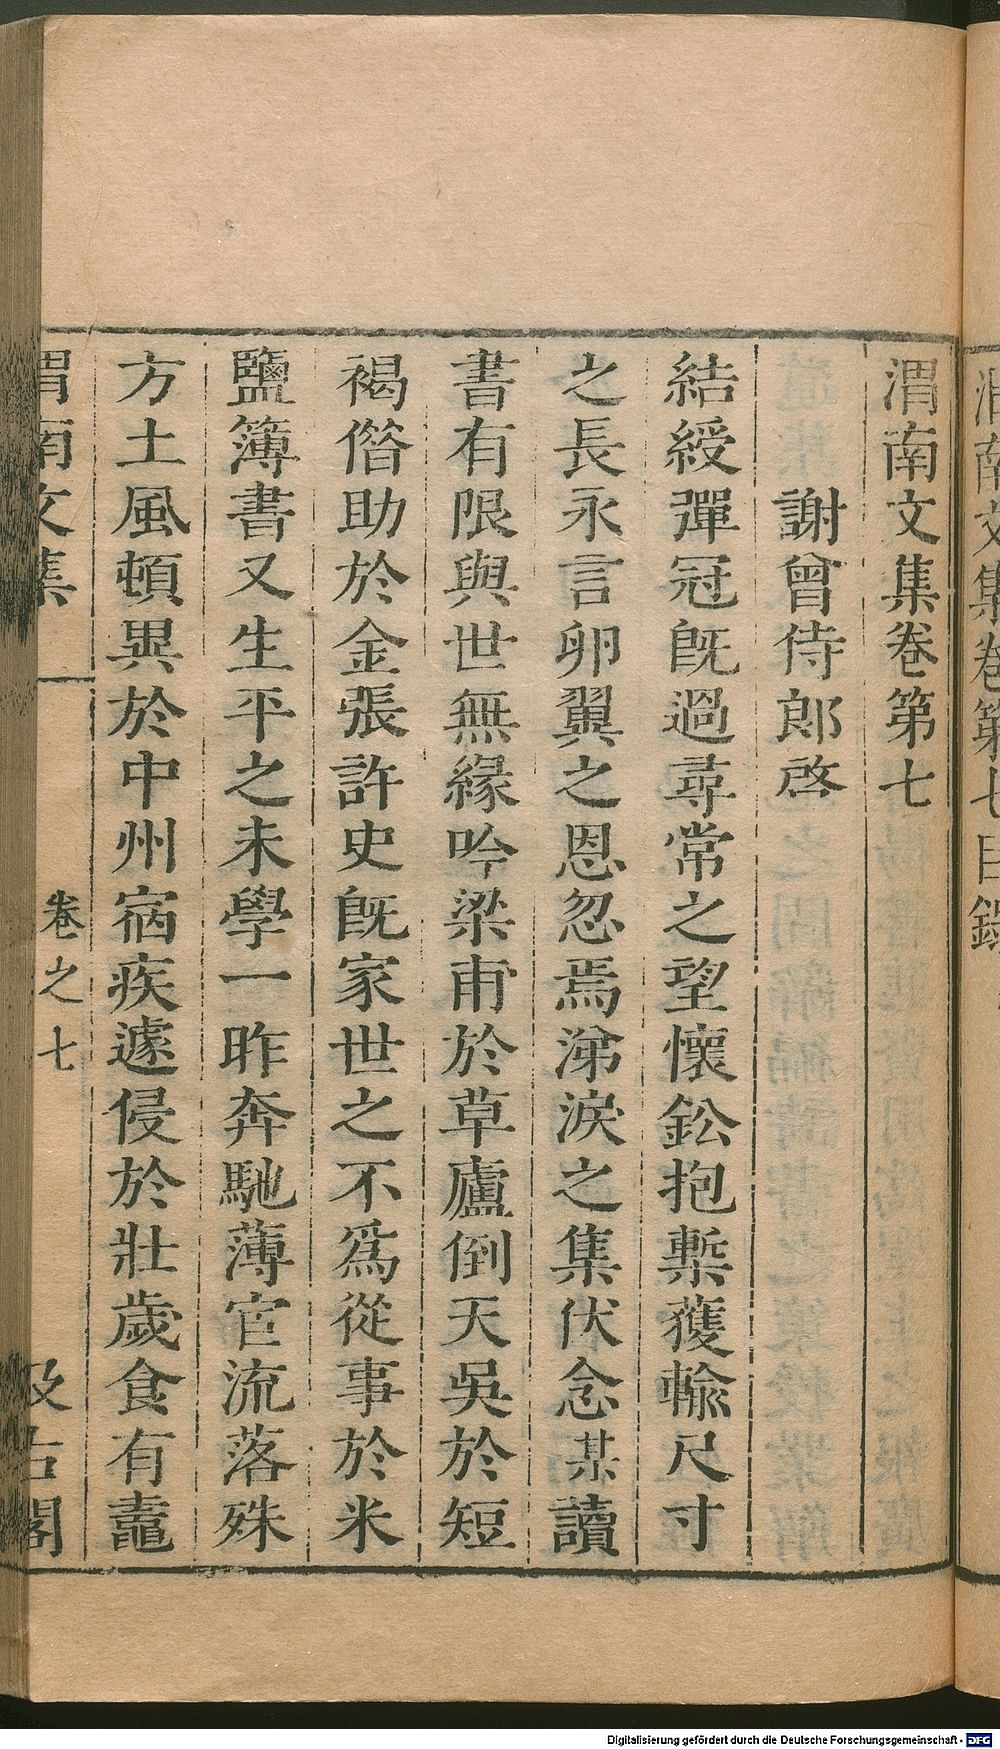 渭南文集卷第七
謝曾侍郎啓
結綬彈冠旣過尋常之望懷鈆抱槧獲輸尺寸
之長永言卵翼之恩忽焉涕淚之集伏念某讀
書有限與世無緣吟梁甫於草廬倒天吳於短
褐偕助於金張許史旣家世之不爲從事於米
鹽簿書又生平之未學一昨奔馳薄宦流落殊
方土風頓異於中州宿疾遽侵於壯歲食有蠹
渭南文集 卷之七 汲古閣
渭南文集卷第七目錄
Digitalisierung gefördert durch die Deutsche Forschungsgemeinschaft - DFG